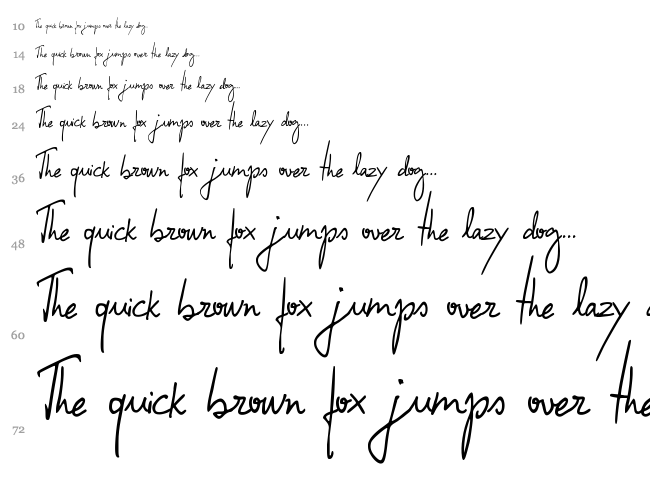 10 The quick brown fox jumps over the lazy dog...
14 The quick brown fox jumps over the lazy dog...
18 The quick brown fox jumps over the lazy dog...
24 The quick brown fox jumps over the lazy dog...
36 The quick brown fox jumps over the lazy dog...
48 The quick brown fox jumps over the lazy dog...
60 The quick brown fox jumps over the lazy
72 The quick brown fox jumps over the